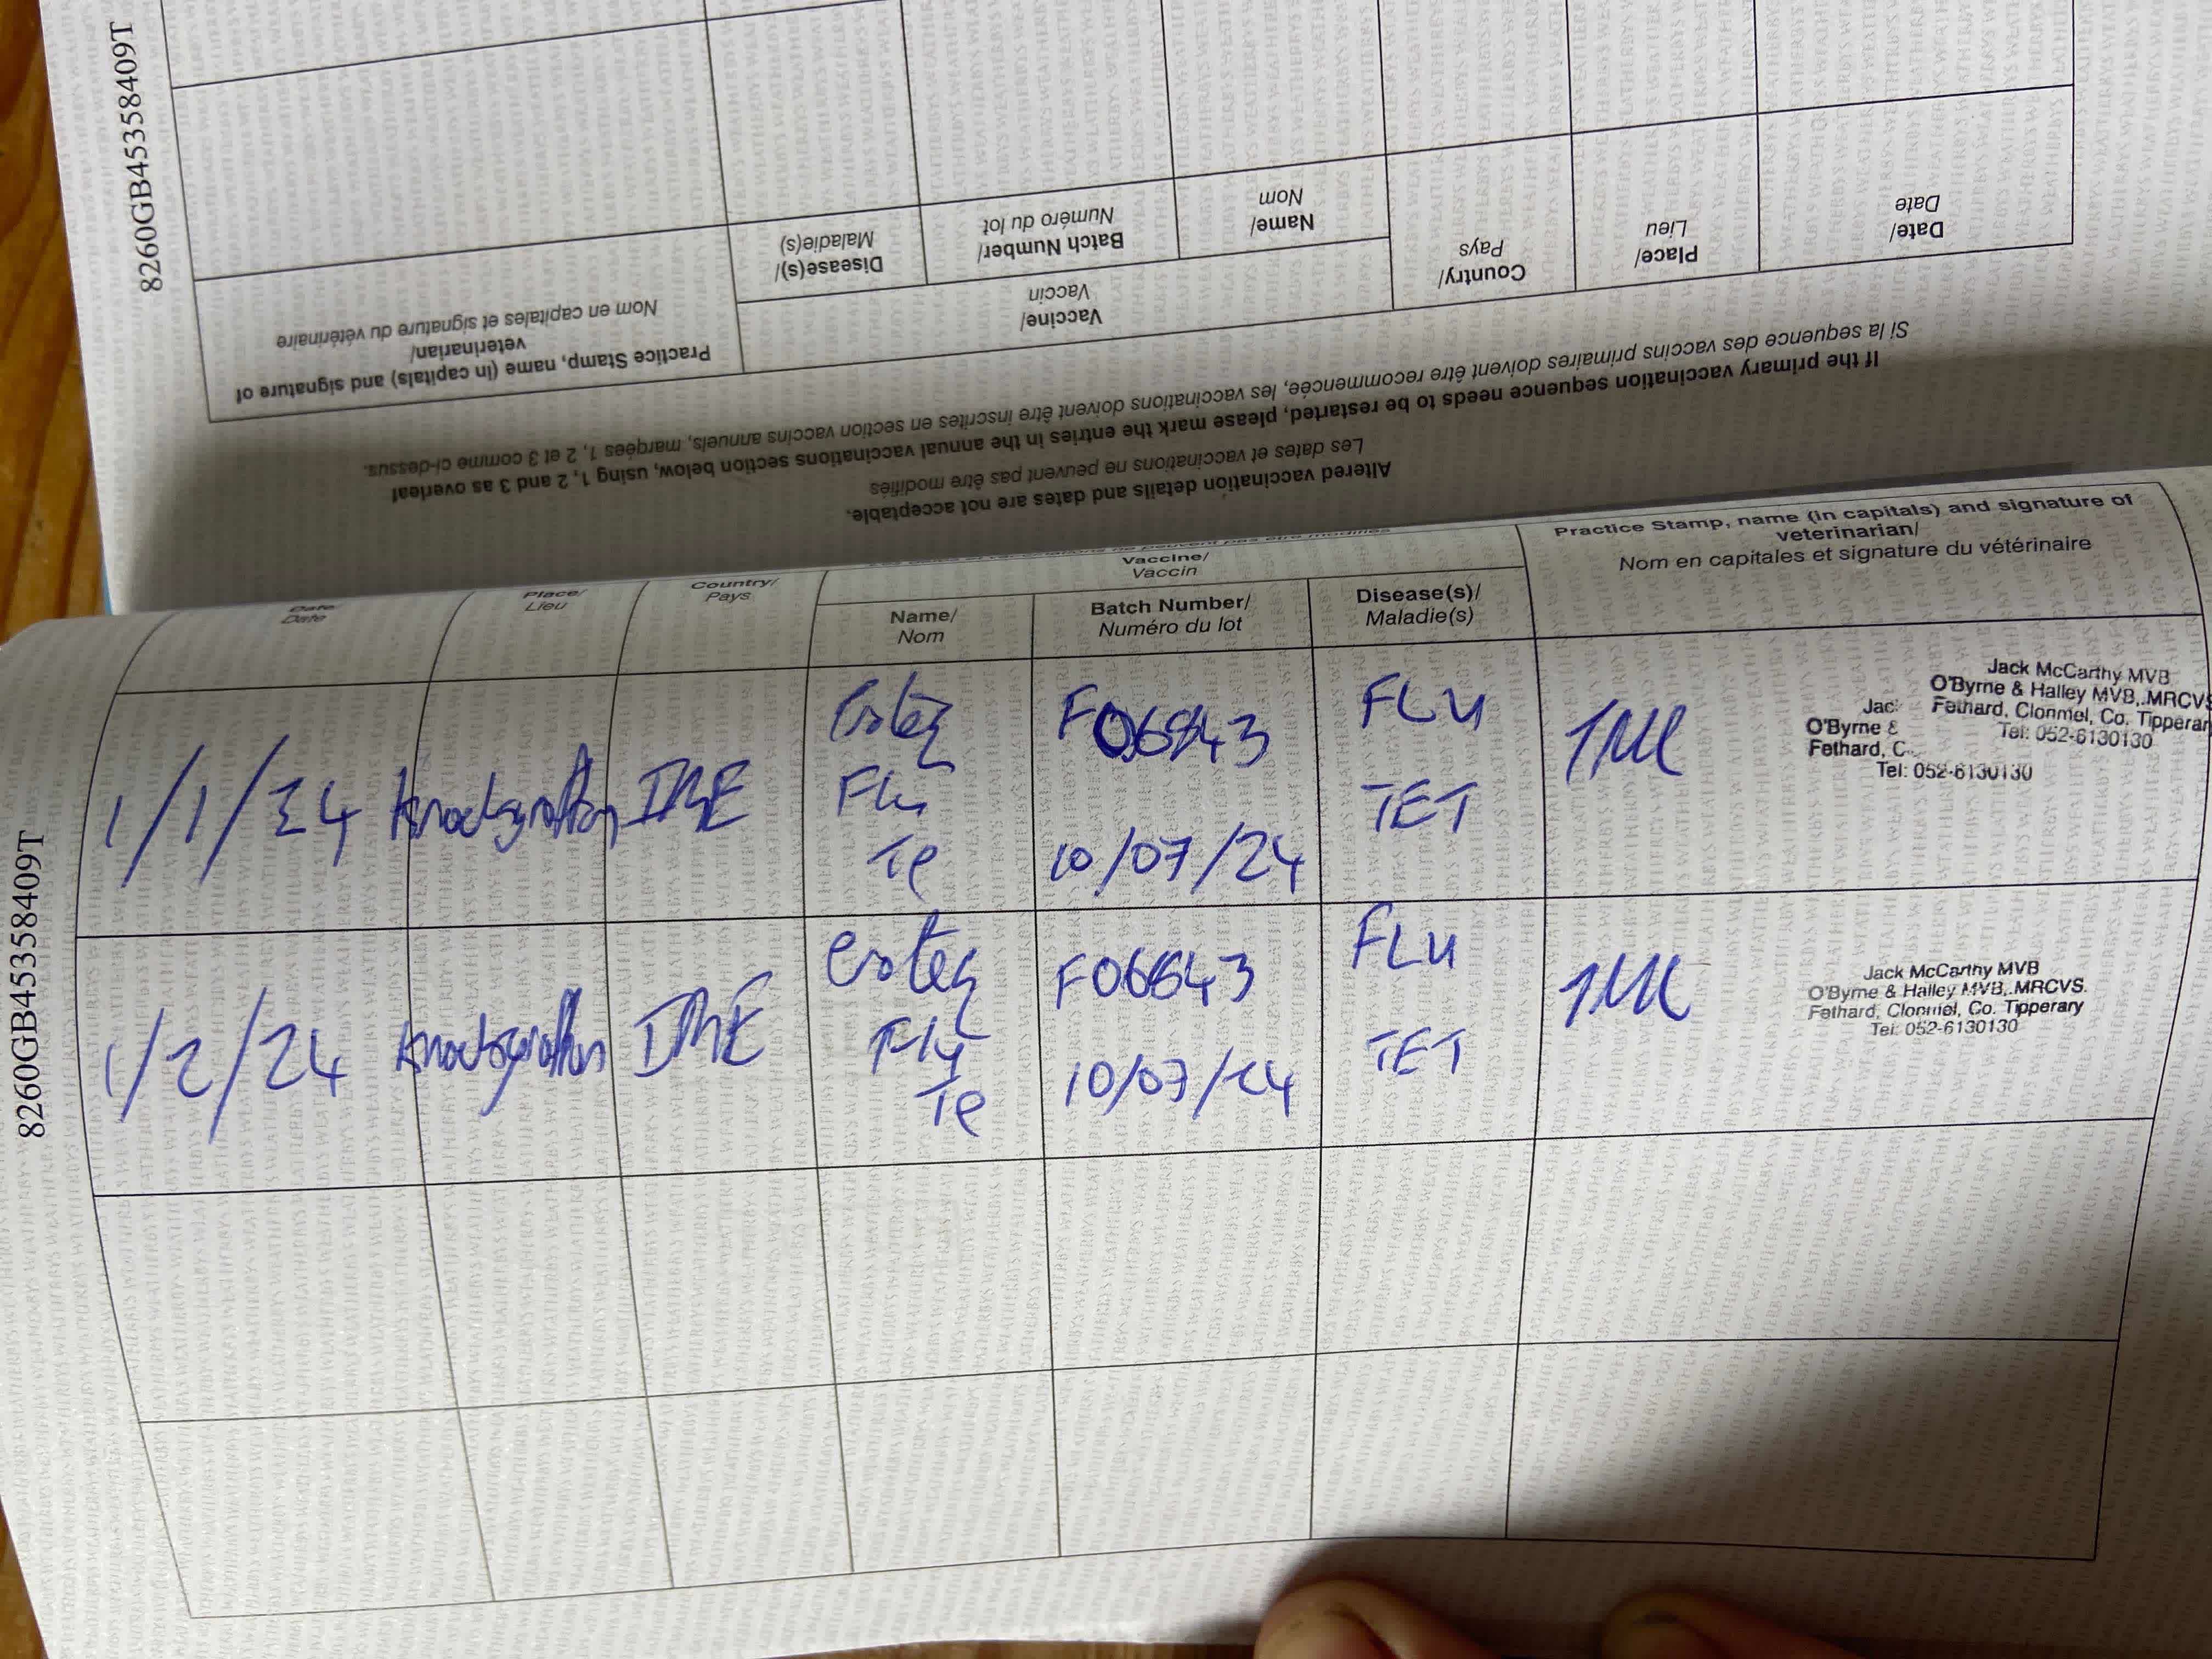 8260GB45358409T
Altered vaccination details and dates are not acceptable.
Les dates et vaccinations ne peuvent pas être modifiés
If the primary vaccination sequence needs to be restarted, please mark the entries in the annual vaccinations section below, using 1, 2 and 3 as overleaf
Si la sequence des vaccins primaires doivent être recommencée, les vaccinations doivent être inscrites en section vaccins annuels, marqées 1, 2 et 3 comme ci-dessus.
Date/
Date
Place/
Lieu
Country/
Pays
Vaccine/
Vaccin
Name/
Nom
Batch Number/
Numéro du lot
Disease(s)/
Maladie(s)
Practice Stamp, name (in capitals) and signature of
veterinarian/
Nom en capitales et signature du vétérinaire
8260GB45358409T
Date/
Date
Place/
Lieu
Country/
Pays
Vaccine/
Vaccin
Name/
Nom
Batch Number/
Numéro du lot
Disease(s)/
Maladie(s)
Practice Stamp, name (in capitals) and signature of
veterinarian/
Nom en capitales et signature du vétérinaire
IRE
Flu
Te
10/07/24
FLU
TET
Jack McCarthy MVB
O'Byrne & Halley MVB, MRCVS
Fethard, Clonmel, Co. Tipperar
Tel: 052-6130130
Jac
O'Byrne &
Fethard, C
Tel: 052-6130130
1/2/24
IRE
Flu
Te
F06643
FLU
TET
Jack McCarthy MVB
O'Byrne & Halley MVB, MRCVS.
Fethard, Clonmel, Co. Tipperary
Tel: 052-6130130